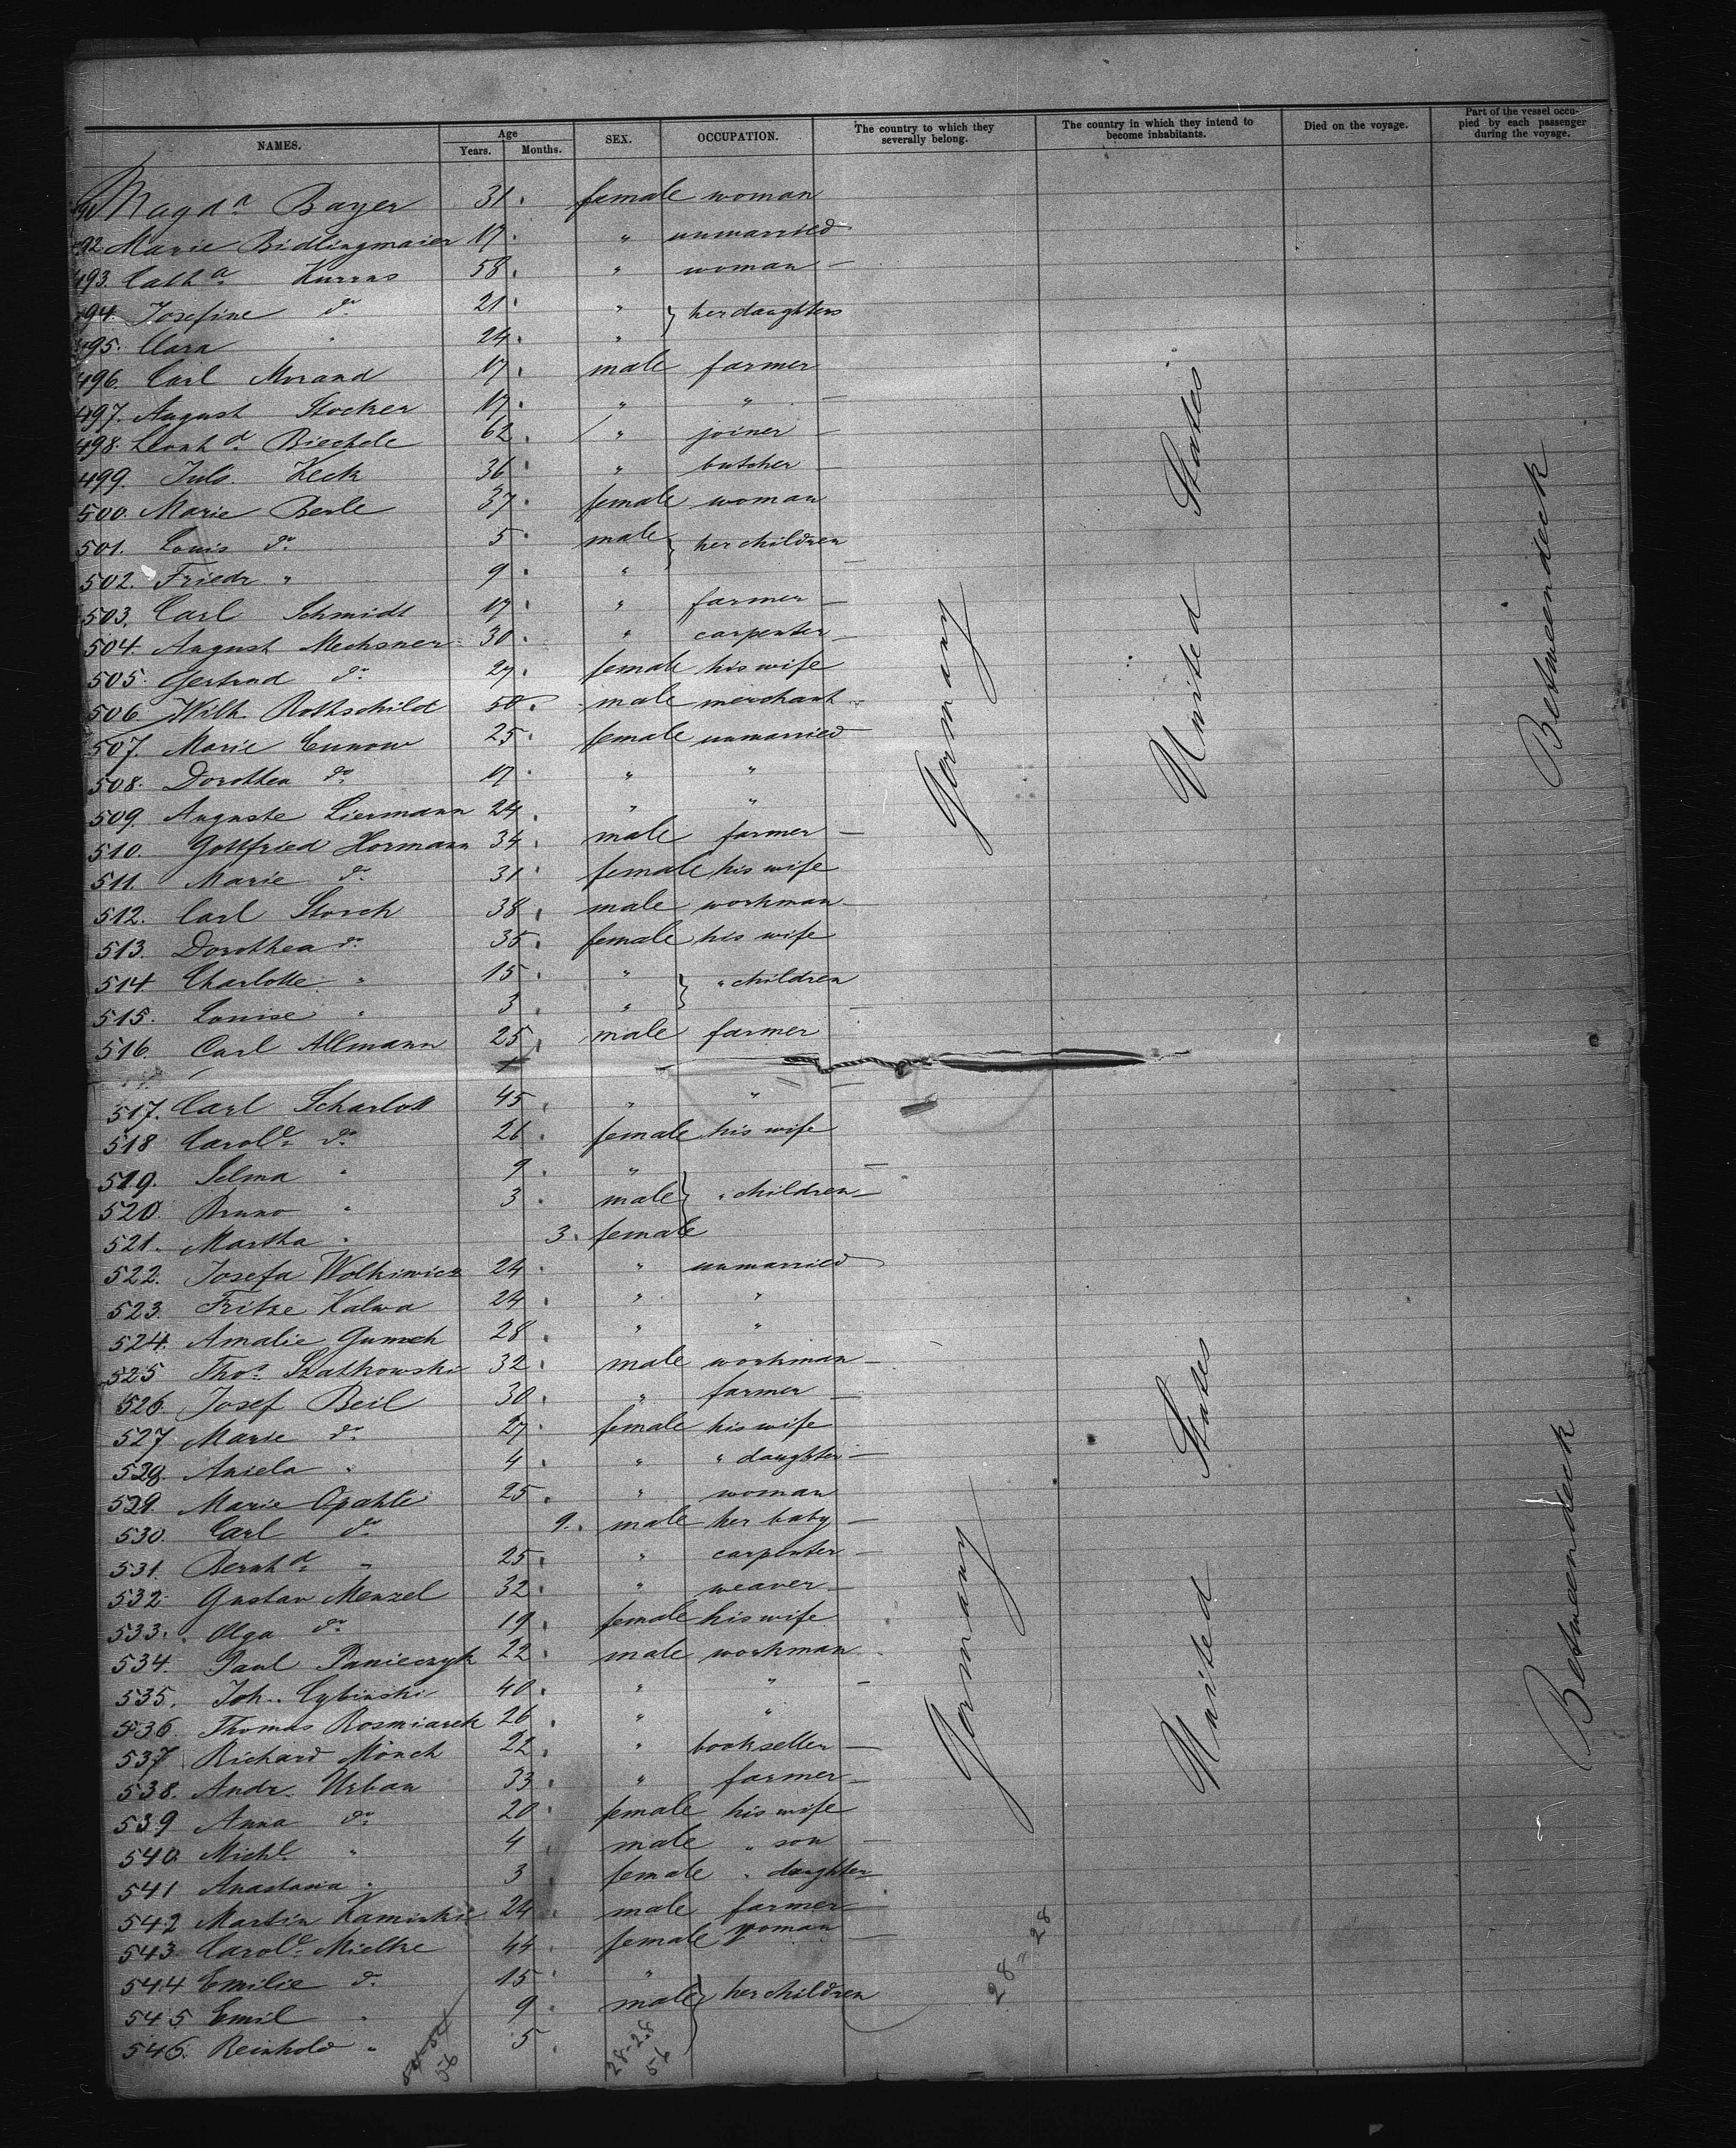 NAMES. Age Years. Months. SEX. OCCUPATION. The country to which they severally belong. The country in which they intend to become inhabitants. Died on the voyage. Part of the vessel occupied by each passenger during the voyage.
Magda. Bayer 31. female woman
492. Marie Bidlingmaier 17. " unmarried
493. Catha. Kurras 58. " woman
494. Josefine do. 21. " } her daughters
495. Clara " 24. "
496. Carl Morand 17. male farmer
497. August Stocker 17. " "
498. Leonhd. Biechele 62. " joiner
499. Juls. Keck 36. " butcher
500. Marie Berle 37. female woman
501. Louis do. 5. male } her children
502. Friedr. " 9. "
503. Carl Schmidt 17. " farmer
504. August Mechsner 30. " carpenter
505. Gertrud do. 27. female his wife
506. Wilh. Rothschild 50. male merchant
507. Marie Cunow 25. female unmarried
508. Dorothea do. 17. " "
509. Auguste Liermann 24. " "
510. Gottfried Hormann 34. male farmer
511. Marie do. 31. female his wife
512. Carl Storch 38. male workman
513. Dorothea do. 35. female his wife
514. Charlotte " 15. " } " children
515. Louise " 3. "
516. Carl Allmann 25. male farmer
517. Carl Scharlott 45. " "
518. Carole. do. 26. female his wife
519. Selma " 9. "
520. Bruno " 3. male } " children
521. Martha " 3. female
522. Josefa Wolkiwicz 24. " unmarried
523. Fritze Kalwa 24. " "
524. Amalie Gumsch 28. " "
525. Thos. Szatkowski 32. male workman
526. Josef Beil 30. " farmer
527. Marie do. 27. female his wife
528. Aniela " 4. " " daughter
529. Marie Opahle 25. " woman
530. Carl do. 9. male her baby
531. Bernhd. " 25. " carpenter
532. Gustav Menzel 32. " weaver
533. Olga do. 19. female his wife
534. Paul Panieczyk 22. male workman
535. Joh. Cybinski 40. " "
536. Thomas Rosmiarek 26. " "
537. Richard Mönch 22. " bookseller
538. Andr. Urban 33. " farmer
539. Anna do. 20. female his wife
540. Michl. " 4. male " son
541. Anastasia " 3. female " daughter
542. Martin Kaminski 24. male farmer
543. Carole. Mielke 44. female woman
544. Emilie do. 15. "
545. Emil " 9. male } her children
546. Reinhold " 5.
Germany United States Betweendeck
Germany United States Betweendeck
28-28
56
28=28